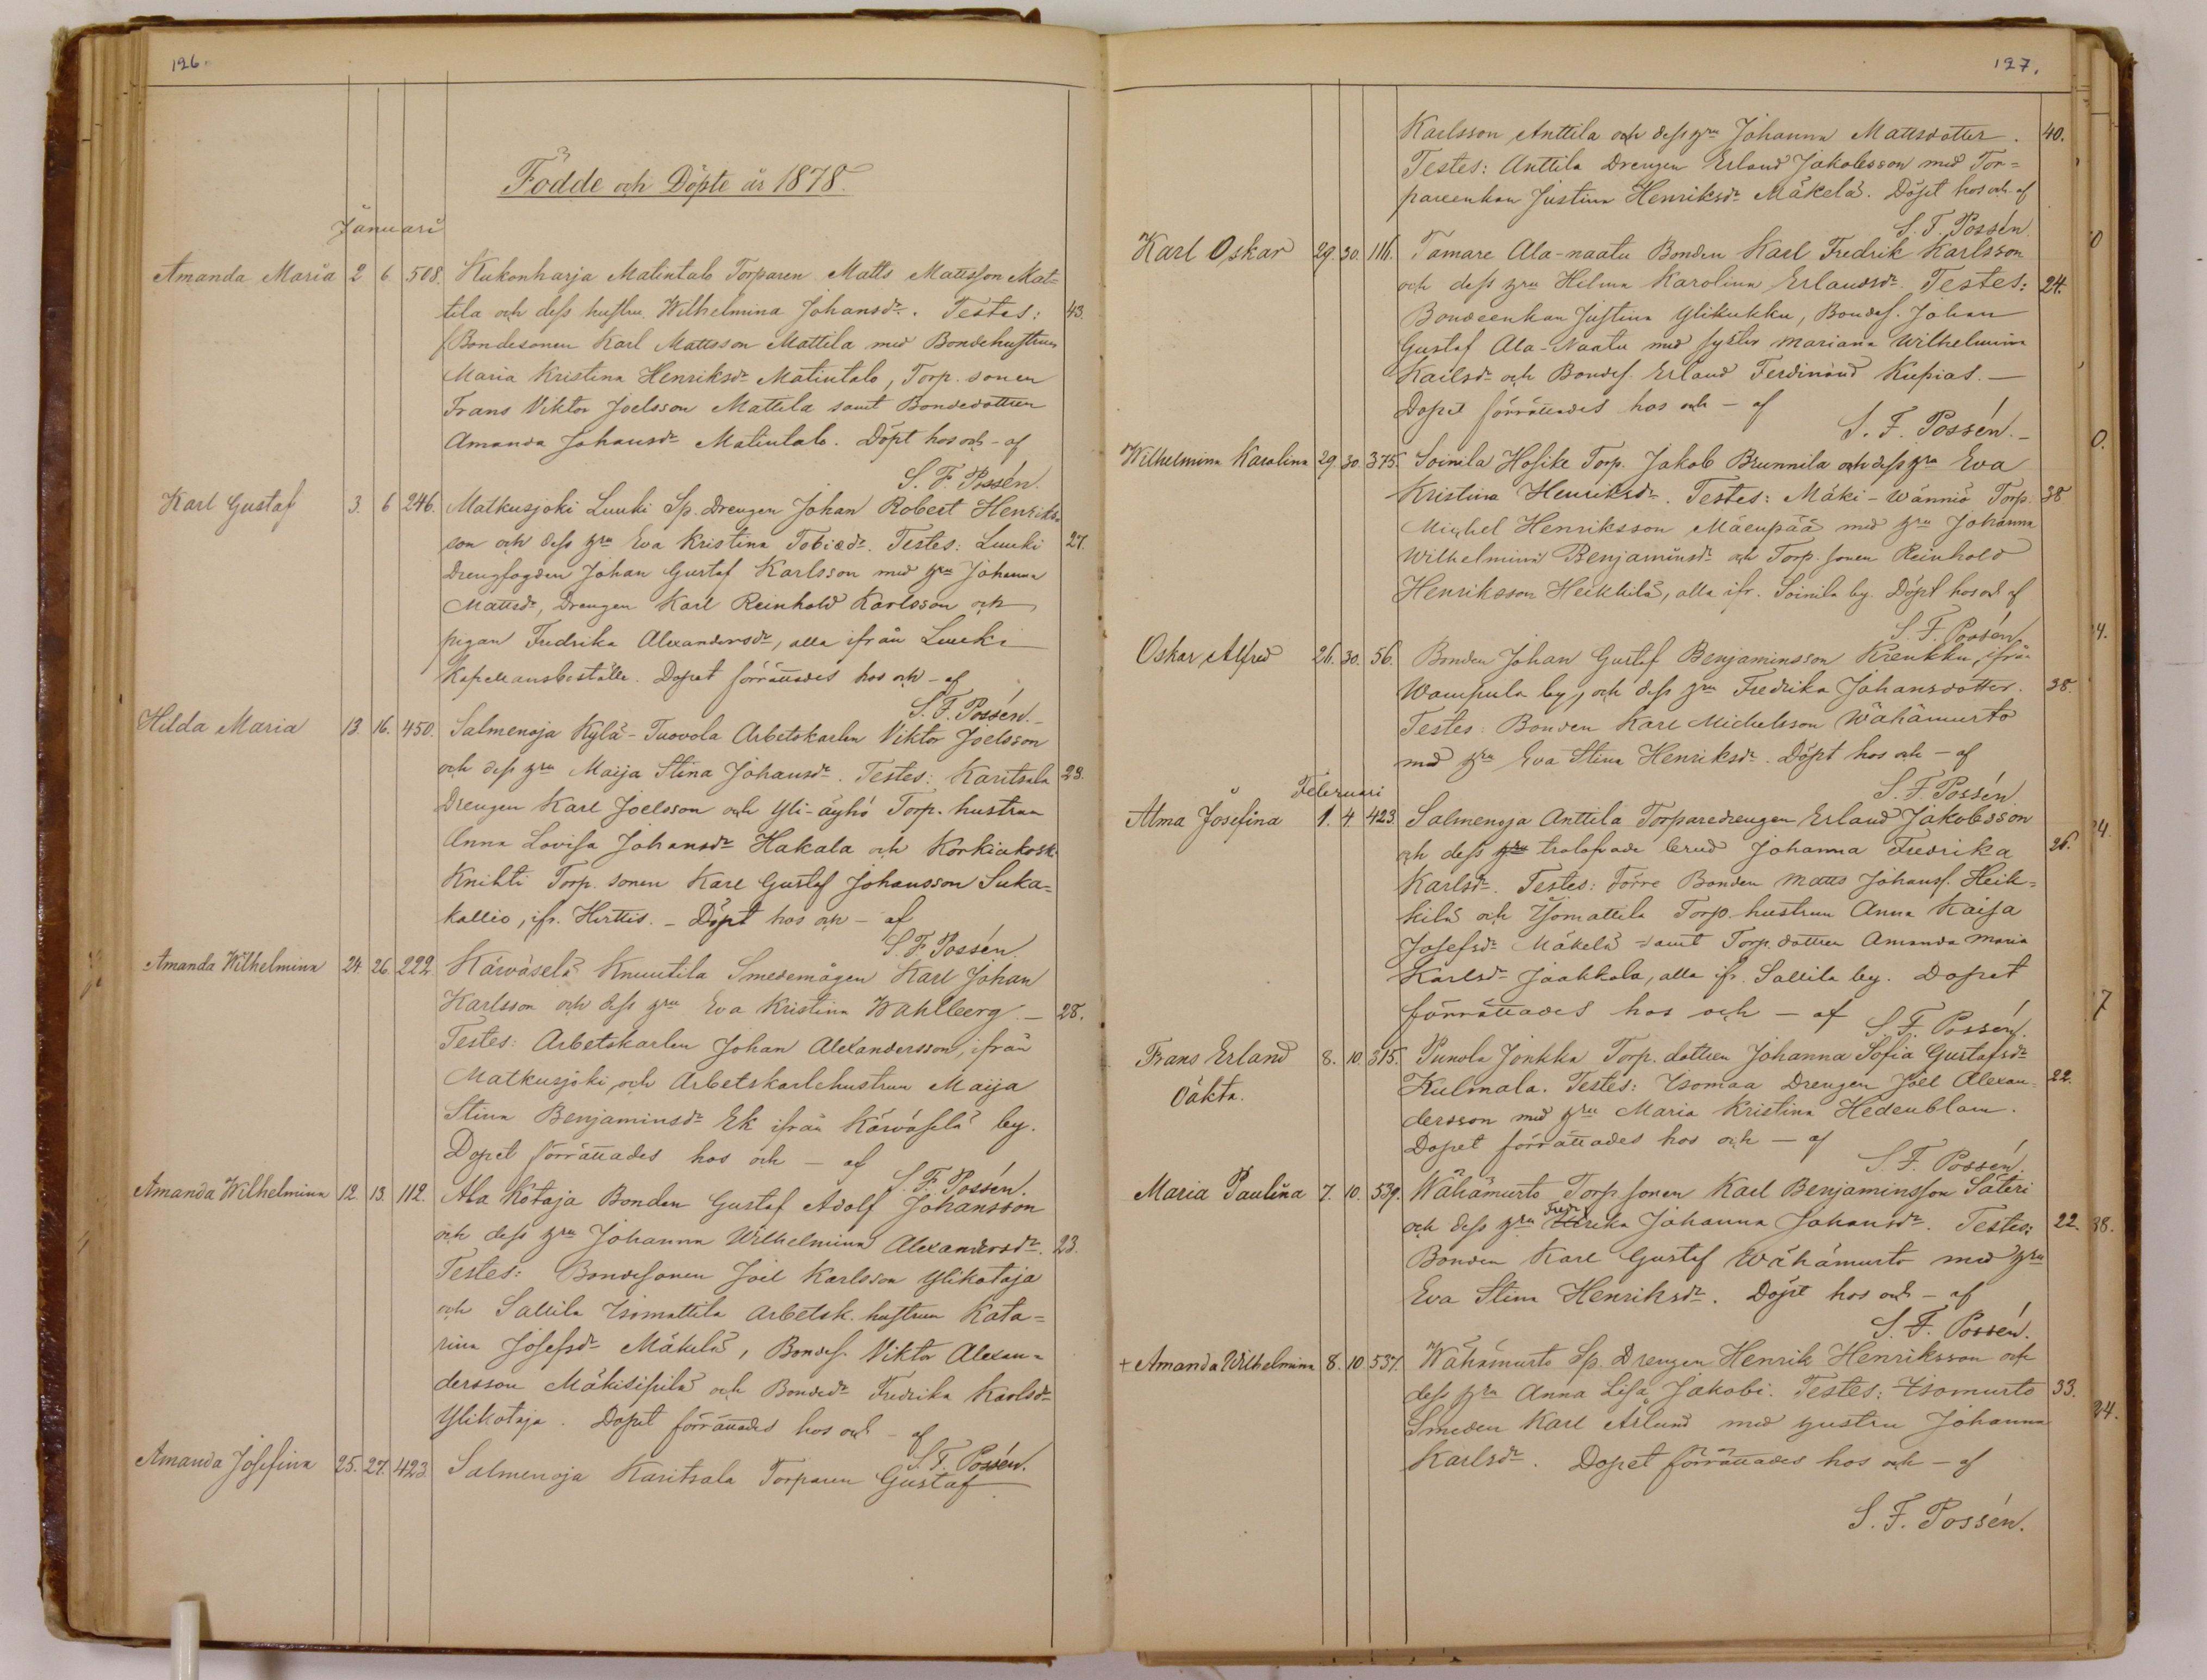 126.
Födde och Döpte år 1878.
Januari
Amanda Maria 2. 6. 508. Kukonharja Matintalo Torparen Matts Mattsson Mat-
tila och dess hustru Wilhelmina Johansdr. Testes: 43.
Bondesonen Karl Mattsson Mattila med Bondehustrun
Maria Kristina Henriksdr Matintalo, Torp. sonen
Frans Viktor Joelsson Mattila samt Bondedottren
Amanda Johansdr Matintalo. Döpt hos och - af
S. F. Possén.
Karl Gustaf 3. 6 246. Matkusjoki Luuki Sp. Drengen Johan Robert Henriks-
son och dess hru Eva Kristina Tobiedr. Testes: Luuki 27.
Drengfogden Johan Gustaf Karlsson med hru Johanna
Mattsdr, Drengen Karl Reinhold Karlsson och
pigan Fredrika Alexandersdr, alla ifrån Luuki
Kapellansboställe. Dopet förrättades hos och - af
S. F. Possén.
Hilda Maria 13. 16. 450. Salmenoja Kylä-Tuovola Arbetskarlen Viktor Joelsson
och dess hru Maija Stina Johansdr. Testes: Karitsala 23.
Drengen Karl Joelsson och Yli-äyhö Torp. hustrun
Anna Lovisa Johansdr Hakala och Korkiakoski
Knihti Torp. sonen Karl Gustaf Johansson Suka-
kallio, ifr. Hirttis. - Döpt hos och - af
S. F. Possén.
Amanda Wilhelmina 24. 26. 222. Käwäselä Knuutila Smedemågen Karl Johan
Karlsson och dess hru Eva Kristina Wahlberg. - 28.
Testes: Arbetskarlen Johan Alexandersson, ifrån
Matkusjoki, och Arbetskarlehustrun Maija
Stina Benjaminsdr Ek ifrån Käwäselä by.
Dopet förrättades hos och - af
S. F. Possén.
Amanda Wilhelmina 12. 13. 112. Ala Kötaja Bonden Gustaf Adolf Johansson
och dess hru Johanna Wilhelmina Alexandersdr. 23.
Testes: Bondesonen Joel Karlsson Ylikotaja
och Sallila Isomattila Arbetsk. hustrun Kata-
rina Josefsdr Mäkelä, Bondes. Viktor Alexan-
dersson Mäkisipilä och Bondedr Fredrika Karlsdr
Ylikotaja. Dopet förrättades hos och - af
S. F. Possén.
Amanda Josefina 25. 27. 423. Salmenoja Karitsala Torparen Gustaf
127.
Karlsson Anttila och dess hru Johanna Mattsdotter. 40.
Testes: Anttila Drengen Erland Jakobsson med Tor-
pareenkan Justina Henriksdr Mäkelä. Döpt hos och af
S. F. Possén.
Karl Oskar 29. 30. 116. Tamare Ala-naatu Bonden Karl Fredrik Karlsson
och dess hru Hilma Karolina Erlandsdr. Testes: 24.
Bondeenkan Justina Ylikukku, Bondes. Johan
Gustaf Ala-Naatu med syster Mariana Wilhelmina
Karlsdr och Bondes. Erland Ferdinand Kupias. -
Dopet förrättades hos och - af
S. F. Possén. -
Wilhelmina Karolina 29. 30. 375. Soinila Hosike Torp. Jakob Brunnila och dess hru Eva
Kristina Henriksdr. Testes: Mäki-Wänniö Torp. 38
Michel Henriksson Mäenpää med hru Johanna
Wilhelmina Benjaminsdr och Torp. sonen Reinhold
Henriksson Heikkilä, alla ifr. Soinila by. Döpt hos och af
S. F. Possén
Oskar Alfred 26. 30. 56. Bonden Johan Gustaf Benjaminsson Krenkku, ifrån
Wampula by, och dess hru Fredrika Johansdotter. 38.
Testes: Bonden Karl Michelsson Wähämurto
med hru Eva Stina Henriksdr. Döpt hos och - af
S. F. Possén.
Februari
Alma Josefina 1. 4. 423. Salmenoja Anttila Torparedrengen Erland Jakobsson
och dess hru trolofvade brud Johanna Fredrika 26.
Karlsdr. Testes: Förre Bonden Matts Johanss. Heik-
kilä och Isomattila Torp. hustrun Anna Kaisa
Josefsdr Mäkelä samt Torp. dottren Amanda Maria
Karlsdr Jaakkola, alla ifr. Sallila by. Dopet
förrättades hos och - af
S. F. Possén.
Frans Erland 8. 10. 315. Punola Jonkka Torp. dottren Johanna Sofia Gustafsdr
Oäkta. Kulmala. Testes: Isomaa Drengen Joel Alexan- 22.
dersson med hru Maria Kristina Hedenblom.
Dopet förrättades hos och - af
S. F. Possén.
Maria Paulina 7. 10. 539. Wähämurto Torp. sonen Karl Benjaminsson Säteri
och dess hru Fredrika Johanna Johansdr. Testes: 22.
Bonden Karl Gustaf Wähämurto med hru
Eva Stina Henriksdr. Döpt hos och - af
S. F. Possén.
+ Amanda Wilhelmina 8. 10. 537. Wähämurto Sp. Drengen Henrik Henriksson och
dess hru Anna Lisa Jakobi. Testes: Isomurto 33.
Smeden Karl Åslund med hustru Johanna
Karlsdr. Dopet förrättades hos och - af
S. F. Possén.